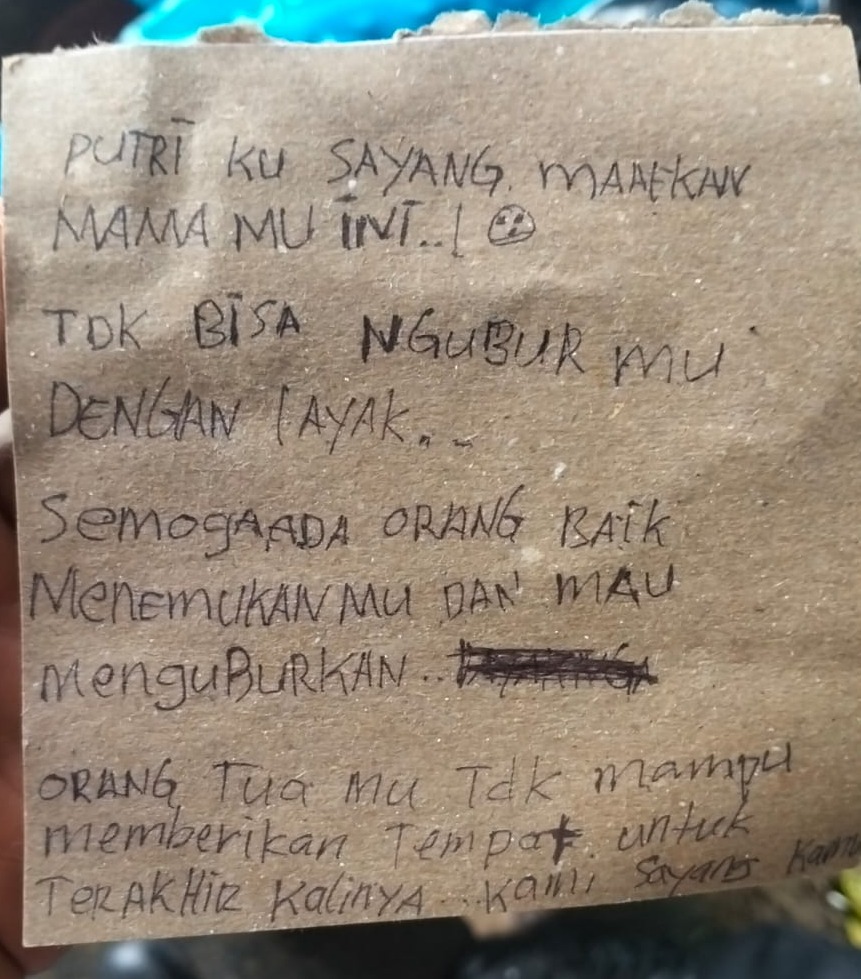 PUTRI KU SAYANG. MAAEKAN
MAMA MU INI..!
TDK BISA NGUBUR MU
DENGAN LAYAK..
SEMOGAADA ORANG BAIK
MENEMUKANMU DAN MAU
MENGUBURKAN..
ORANG Tua mu Tdk mampu
memberikan Tempat. untuk
TERAKHIR KalinYA...kami Sayang Kamu